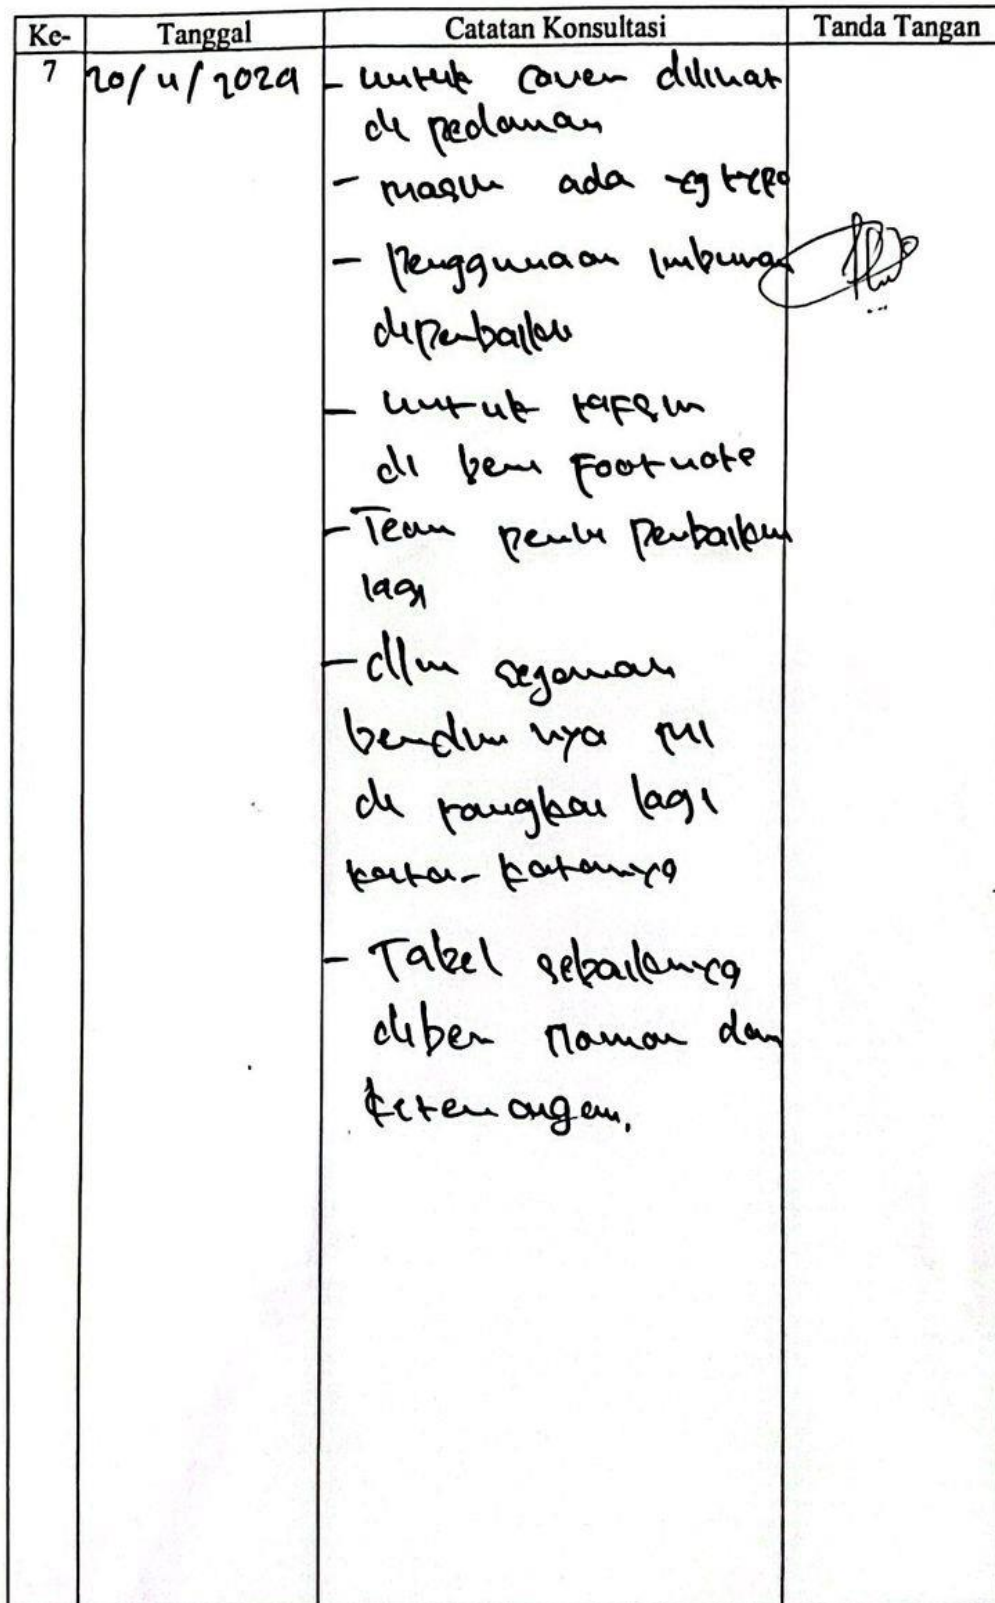 Ke- Tanggal Catatan Konsultasi Tanda Tangan
7 20/4/2024 - untuk cover dilihat
di pedoman
- masih ada yg typo
- Penggunaan imbuhan
diperbaiki
- untuk tafsir
di beri Footnote
- Teori perlu perbaikan
lagi
- dlm sejarah
berdirinya
di rangkai lagi
kata-katanya
- Tabel sebaiknya
diberi Nomor dan
keterangan.